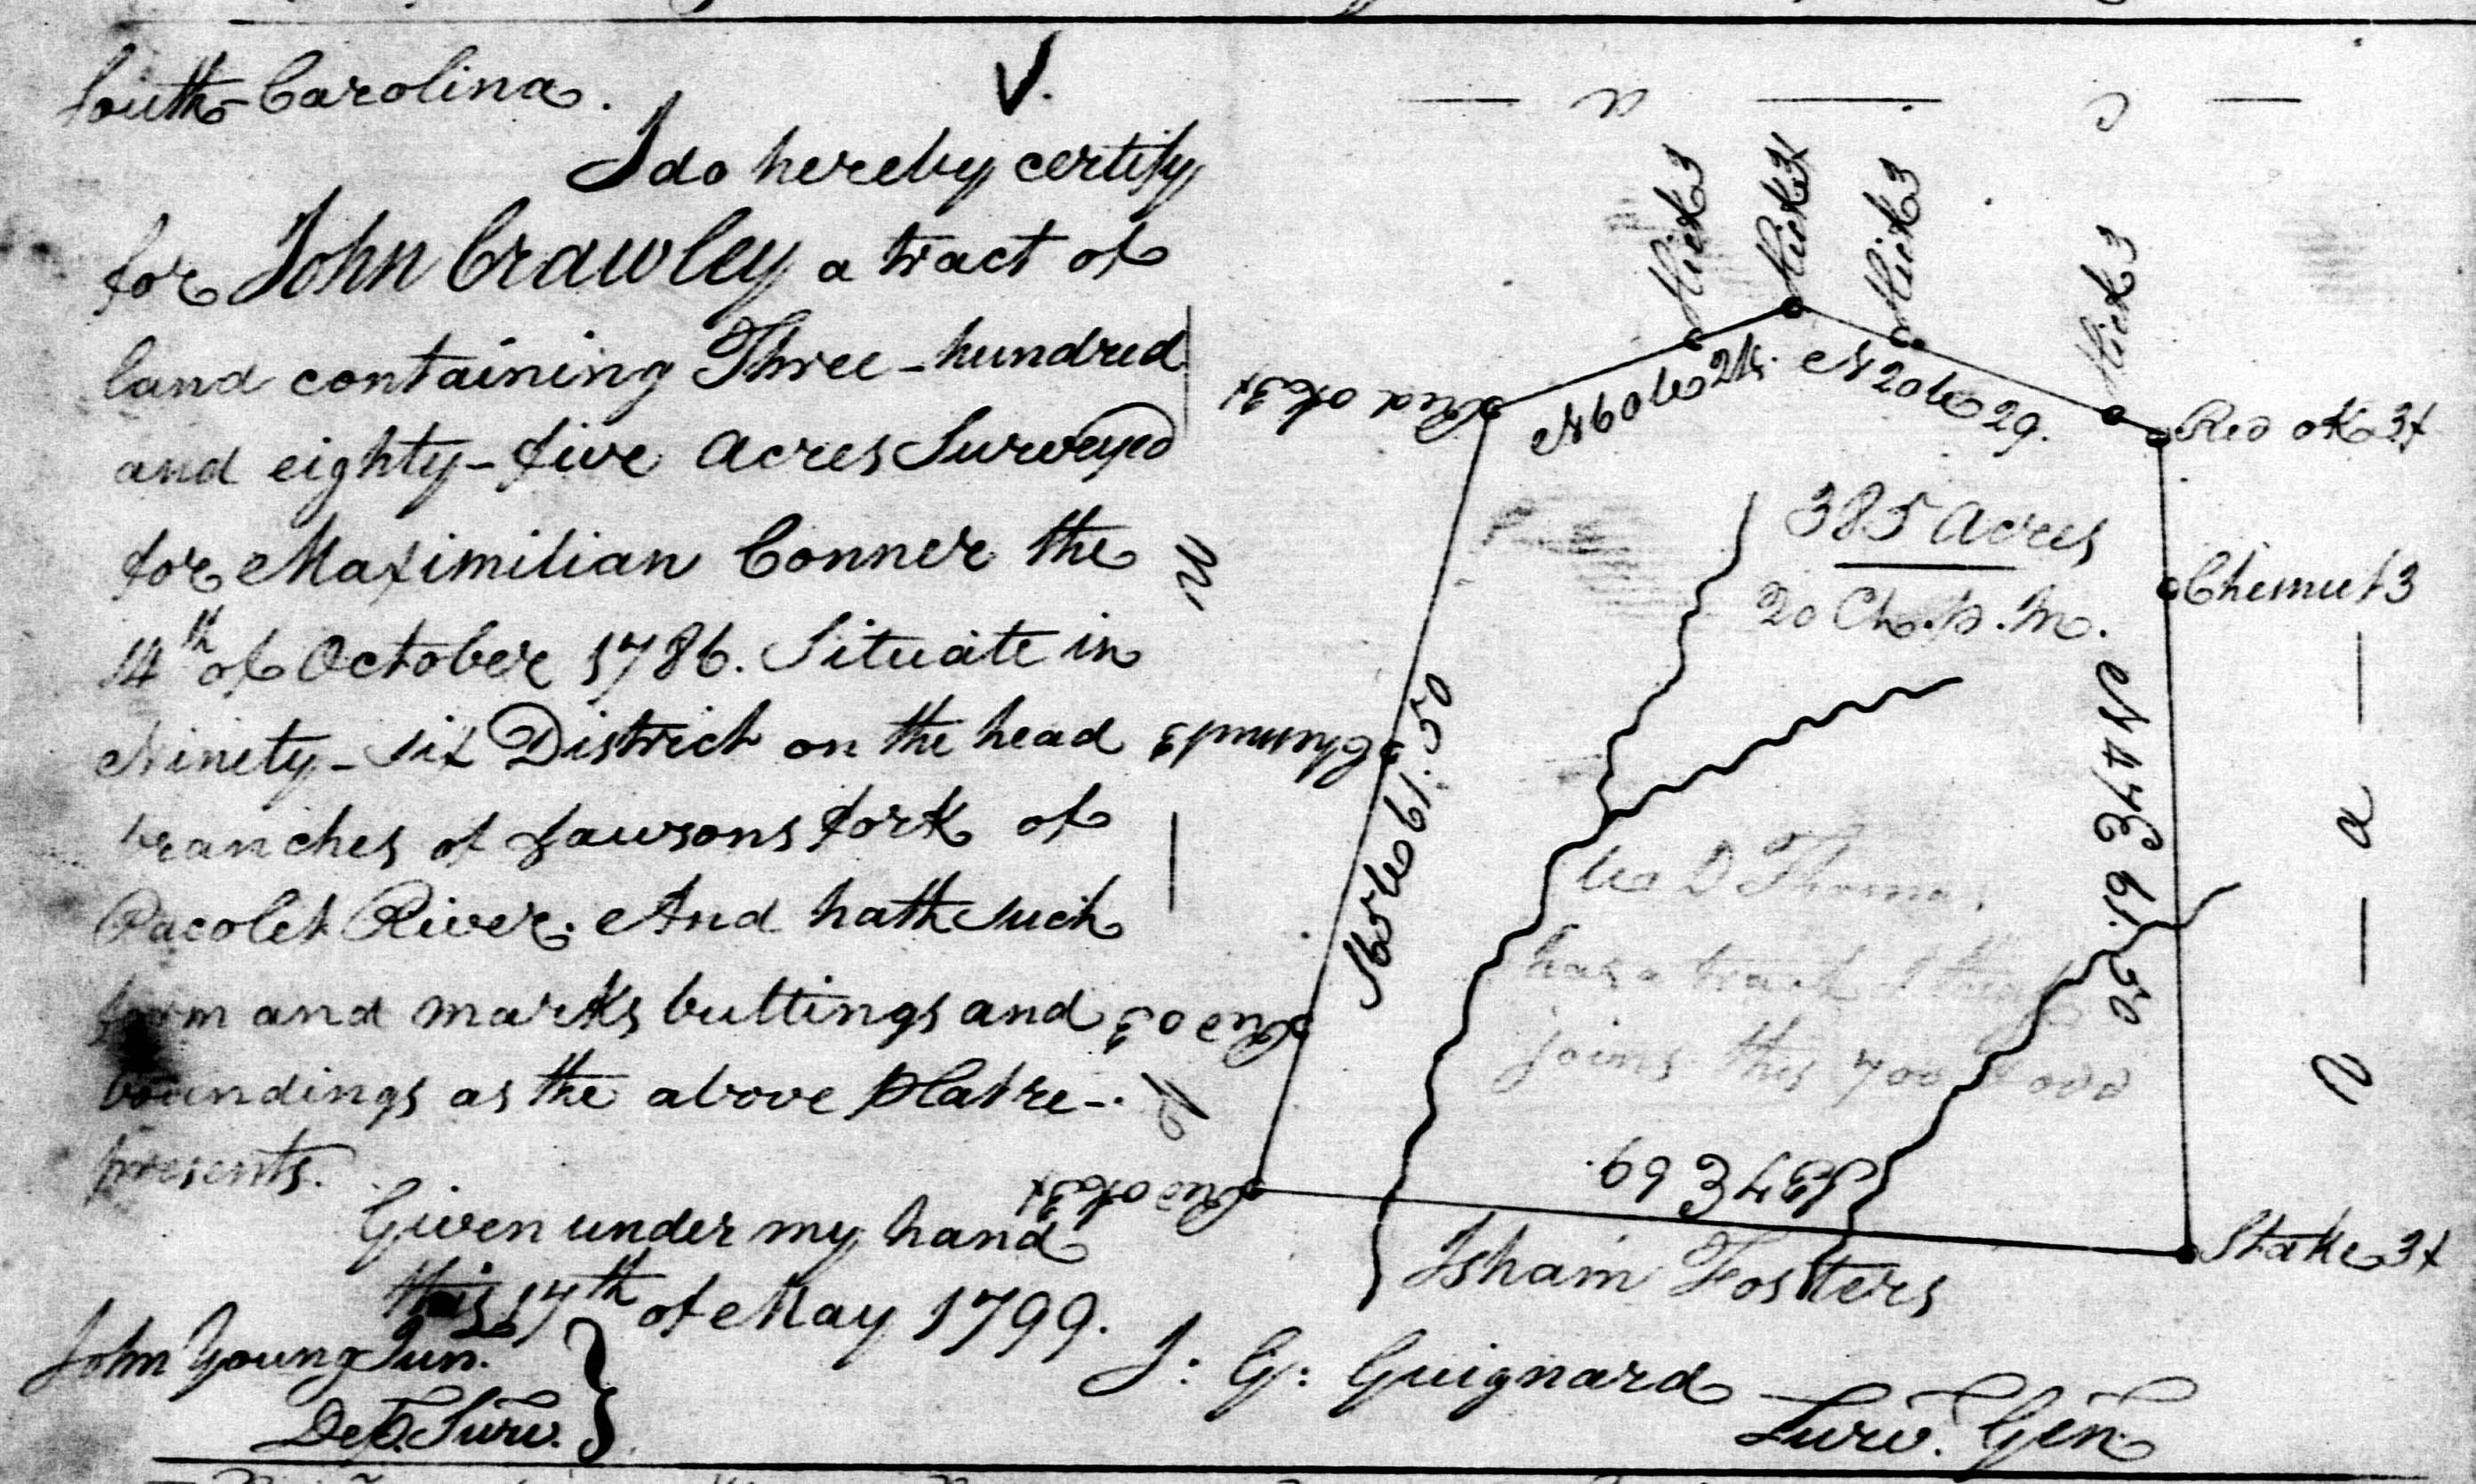 South Carolina.
I do hereby certify
for John Crawley a tract of
land containing Three-hundred
and eighty-five acres Surveyed
for Maximilian Conner the
14th of October 1786. Situate in
Ninety-six District on the head
branches of Lawsons fork of
Pacolet River. And hath such
form and marks buttings and
boundings as the above plat re-
presents.
Given under my hand
this 17th of May 1799.
John Young Jun.
Dep. Surv.
J: G: Guignard
Surv. Gen
V a c a n
Hick 3
Hick 3x
Hick 3
Hick 3
Red ok 3x
N60W 24.
N20W 29.
Red ok 3x
385 Acres
20 Ch. p. In.
Chesnut 3
N47E 61.50
Chesnut 3
Red o 3
Red ok 3x
S43E 69.
Stake 3x
Isham Fosters
D Thomas
has a track
joins this 700